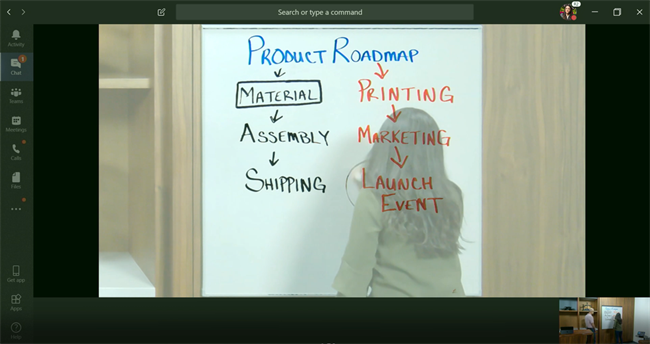 Search or type a command
Activity
Chat
Teams
Meetings
Calls
Files
Get app
Apps
Help
PRODUCT ROADMAP
MATERIAL
ASSEMBLY
SHIPPING
PRINTING
MARKETING
LAUNCH
EVENT